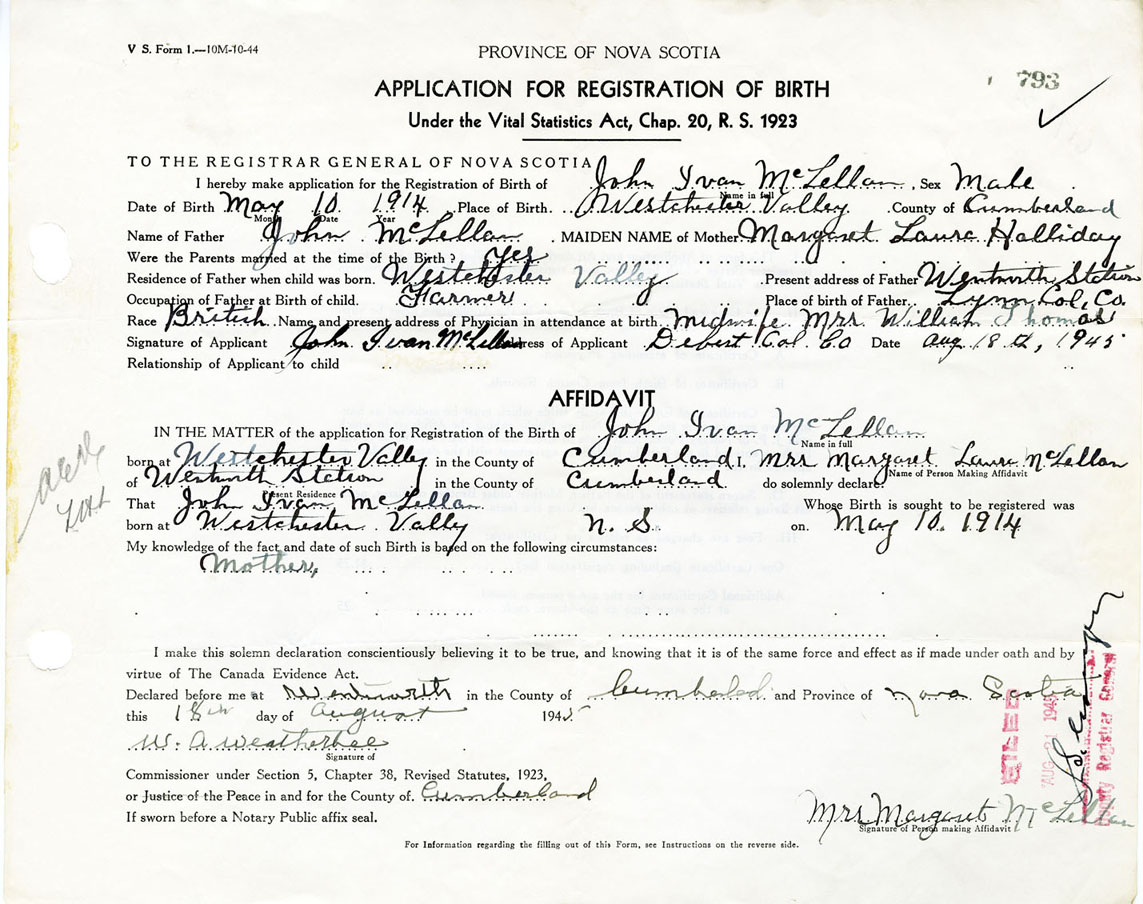 V S. Form 1.—10M-10-44
PROVINCE OF NOVA SCOTIA
793
APPLICATION FOR REGISTRATION OF BIRTH
Under the Vital Statistics Act, Chap. 20, R. S. 1923
TO THE REGISTRAR GENERAL OF NOVA SCOTIA
I hereby make application for the Registration of Birth of John Ivan McLellan. Sex Male
Name in full
Date of Birth May 10 1914 Place of Birth. Westchester Valley County of Cumberland
Month Date Year
Name of Father John McLellan. MAIDEN NAME of Mother Margaret Laura Halliday
Were the Parents married at the time of the Birth? Yes
Residence of Father when child was born. Westchester Valley. Present address of Father Wentworth Station
Occupation of Father at Birth of child. Farmer Place of birth of Father. Lynn Col. Co.
Race British Name and present address of Physician in attendance at birth Midwife Mrs William Thomas
Signature of Applicant John Ivan McLellan Address of Applicant Debert Col. Co Date Aug 18th, 1945
Relationship of Applicant to child
AFFIDAVIT
IN THE MATTER of the application for Registration of the Birth of John Ivan McLellan
Name in full
born at Westchester Valley in the County of Cumberland I, Mrs Margaret Laura McLellan
Name of Person Making Affidavit
of Wentworth Station in the County of Cumberland do solemnly declare
Present Residence
That John Ivan McLellan Whose Birth is sought to be registered was
born at Westchester Valley N. S. on. May 10. 1914
My knowledge of the fact and date of such Birth is based on the following circumstances:
Mother,
I make this solemn declaration conscientiously believing it to be true, and knowing that it is of the same force and effect as if made under oath and by
virtue of The Canada Evidence Act.
Declared before me at Wentworth in the County of Cumbeland and Province of Nova Scotia
this 18th day of August 1945
W. A Weatherbee
Signature of
Commissioner under Section 5, Chapter 38, Revised Statutes, 1923,
or Justice of the Peace in and for the County of. Cumberland
If sworn before a Notary Public affix seal.
Mrs Margaret McLellan
Signature of Person making Affidavit
For Information regarding the filling out of this Form, see Instructions on the reverse side.
FILED
AUG 21 1945
Deputy Registrar General